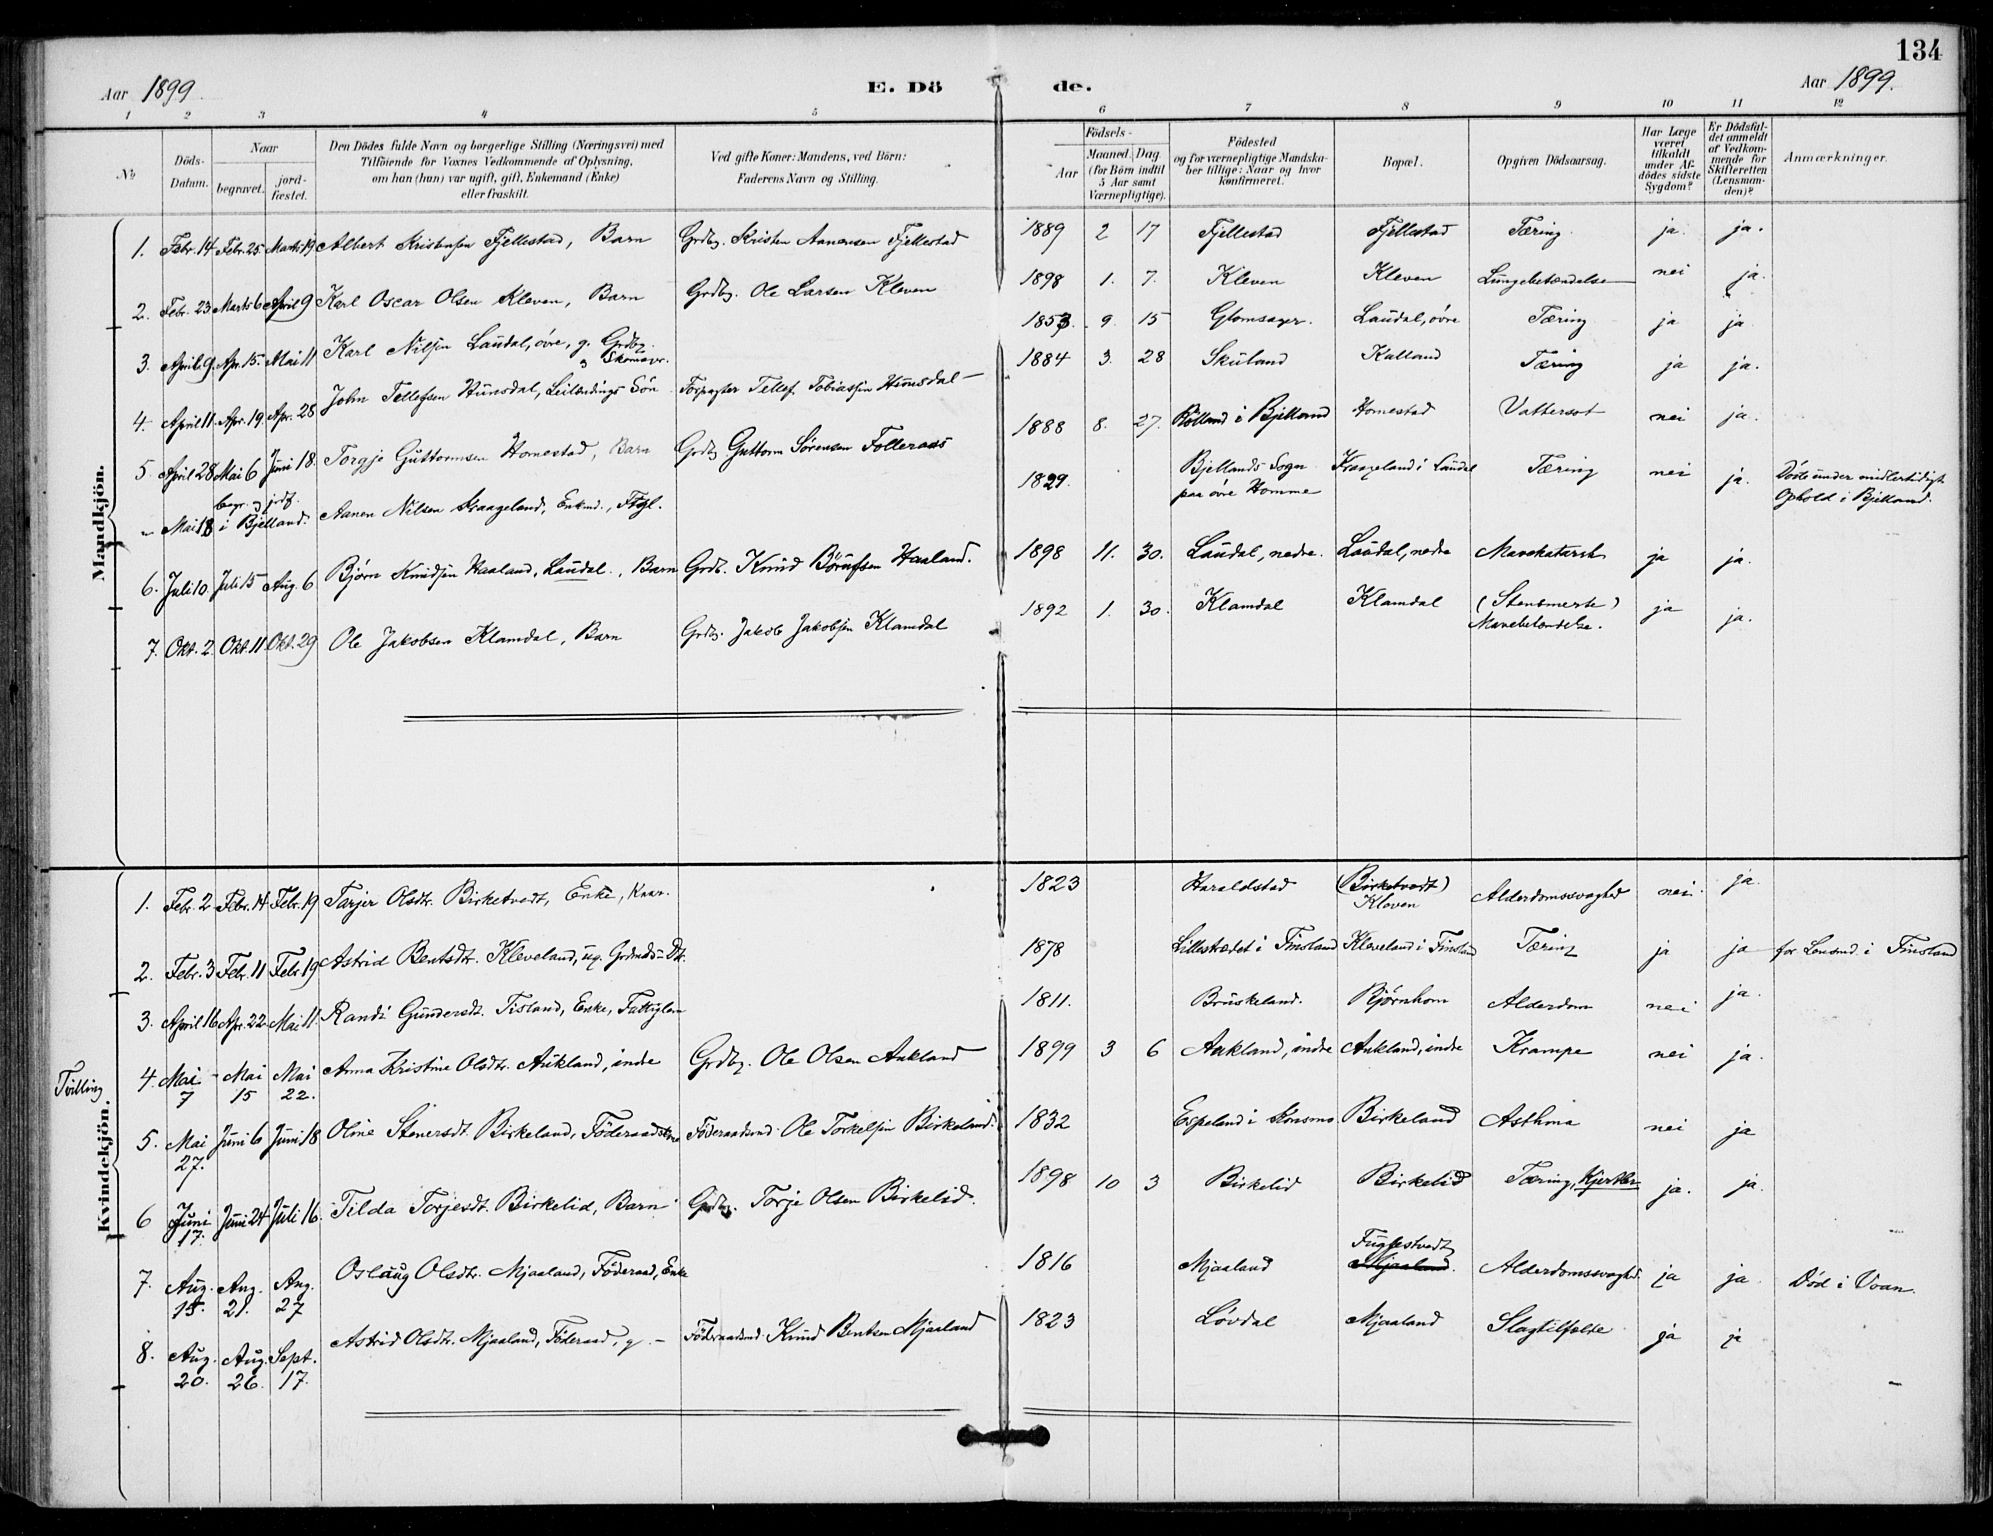 134
Aar 1899.
E. Dö
de.
Aar 1899.
1 2 3 4 5 6 7 8 9 10 11 12
No
Döds-Datum.
Naar
begravet.
jordfæstet.
Den Dödes fulde Navn og borgerlige Stilling (Næringsvei) med
Tilföiende for Voxnes Vedkommende af Oplysning,
om han (hun) var ugift, gift, Enkemand (Enke)
eller fraskilt.
Ved gifte Koner: Mandens, ved Börn:
Faderens Navn og Stilling.
Födsels-
Aar
Maaned. Dag.
(for Börn indtil
5 Aar samt
Værnepligtige).
Födested
og for værnepligtige Mandska-
ber tillige: Naar og hvor
konfirmeret.
Bopæl.
Opgiven Dödsaarsag.
Har Læge
været
tilkaldt
under Af-
dödes sidste
Sygdom?
Er Dödsfal-
det anmeldt
af Vedkom-
mende for
Skifteretten
(Lensman-
den)?
Anmærkninger.
Mandkjön.
1. Febr. 14 Febr. 25 Marts 19 Albert Kristensen Fjellestad, Barn Grdbr. Kristen Aanensen Fjellestad 1889 2 17 Fjellestad Fjellestad Tæring ja. ja.
2. Febr. 23 Marts 6 April 9 Karl Oscar Olsen Kleven, Barn Grdbr. Ole Larsen Kleven 1898 1. 7. Kleven Kleven Lungebetændelse nei ja.
3. April 9. Apr. 15. Mai 11 Karl Nilsen Laudal, övre, g. Grdbr. 1853. 9. 15 Glomsager. Laudal, övre Tæring ja ja
4. April 11. Apr. 19. Apr. 28 John Tellefsen Hunsdal, Leilændings Sön Forpagter Tellef Tobiassen Hunsdal 1884 3. 28 Skuland Kalland Tæring ja ja.
5. April 28 Mai 6 Juni 18. Torgje Guttormsen Homestad, Barn Grdbr Guttorm Sörensen Folleraas 1888 8. 27. i Bjelland Homestad Vattersot nei ja.
" Mai 18 begr. og jrdf. i Bjelland. Aanen Nilsen Kraageland, Enkmd., Ftgl. 1829. Bjellands Sogn paa övre Homme Kraageland i Laudal Tæring nei ja. Döde under midlertidigt Ophold i Bjelland.
6. Juli 10. Juli 15 Aug. 6 Björn Knudsen Haaland, Laudal., Barn Grdb. Knud Haaland. 1898 11. 30. Laudal, nedre. Laudal, nedre Mavekatarrh ja ja.
7. Okt. 2. Okt. 11 Okt. 29 Ole Jakobsen Klamdal, Barn Grdbr. Jakob Jakobsen Klamdal 1892 1. 30. Klamdal Klamdal (Stensmerte) Mavebetændelse. ja ja.
Kvindekjön.
1. Febr. 2 Febr. 14 Febr. 19 Tarjer Olsdtr. Birketvedt, Enke, 1823 Haraldstad (Birketvedt) Kleven Alderdomssvaghed nei. ja.
2. Febr. 3 Febr. 11 Febr 19 Astrid Bentsdtr. Kleveland, ug. 1878 Lillestrædet i Finsland Kleveland i Finsland Tæring ja ja for Lensmd. i Finsland
3. April 16 Apr. 22. Mai 11. Randi Gundersdt. Tisland, Enke, Fattiglem 1811. Bruskeland. Bjørnhom Alderdom nei ja.
Tvilling
4. Mai 7 Mai 15 Mai 22. Anna Kristine Olsdtr. Aukland, indre Grdbr. Ole Olsen Aukland 1899 3 6 Aukland, indre Aukland, indre Krampe nei ja.
5. Mai 27. Juni 6 Juni 18 Oline Stenersdt. Birkeland, Föderaadskone Föderaadsmd. Ole Torkelsen Birkeland. 1832 Espeland i Konsmo Birkeland Asthma nei ja
6 Juni 17. Juni 24 Juli 16. Tilda Torjesdt. Birkelid, Barn Grdbr. Torje Olsen Birkelid. 1898 10 3 Birkelid Birkelid Tæring, Kjertler ja. ja.
7. Aug. 15. Aug. 21. Aug. 27 Oslaug Olsdtr. Mjaaland, Föderaad, Enke 1816 Mjaaland Fuglestvedt Mjaaland. Alderdomssvaghed. ja ja Död i Vran.
8. Aug. 20. Aug. 26. Sept. 17. Astrid Olsdtr. Mjaaland, Föderaad, g. - Föderaadsmd. Knud Bentsen Mjaaland 1823 Lövdal Mjaaland Slagtilfælde ja ja